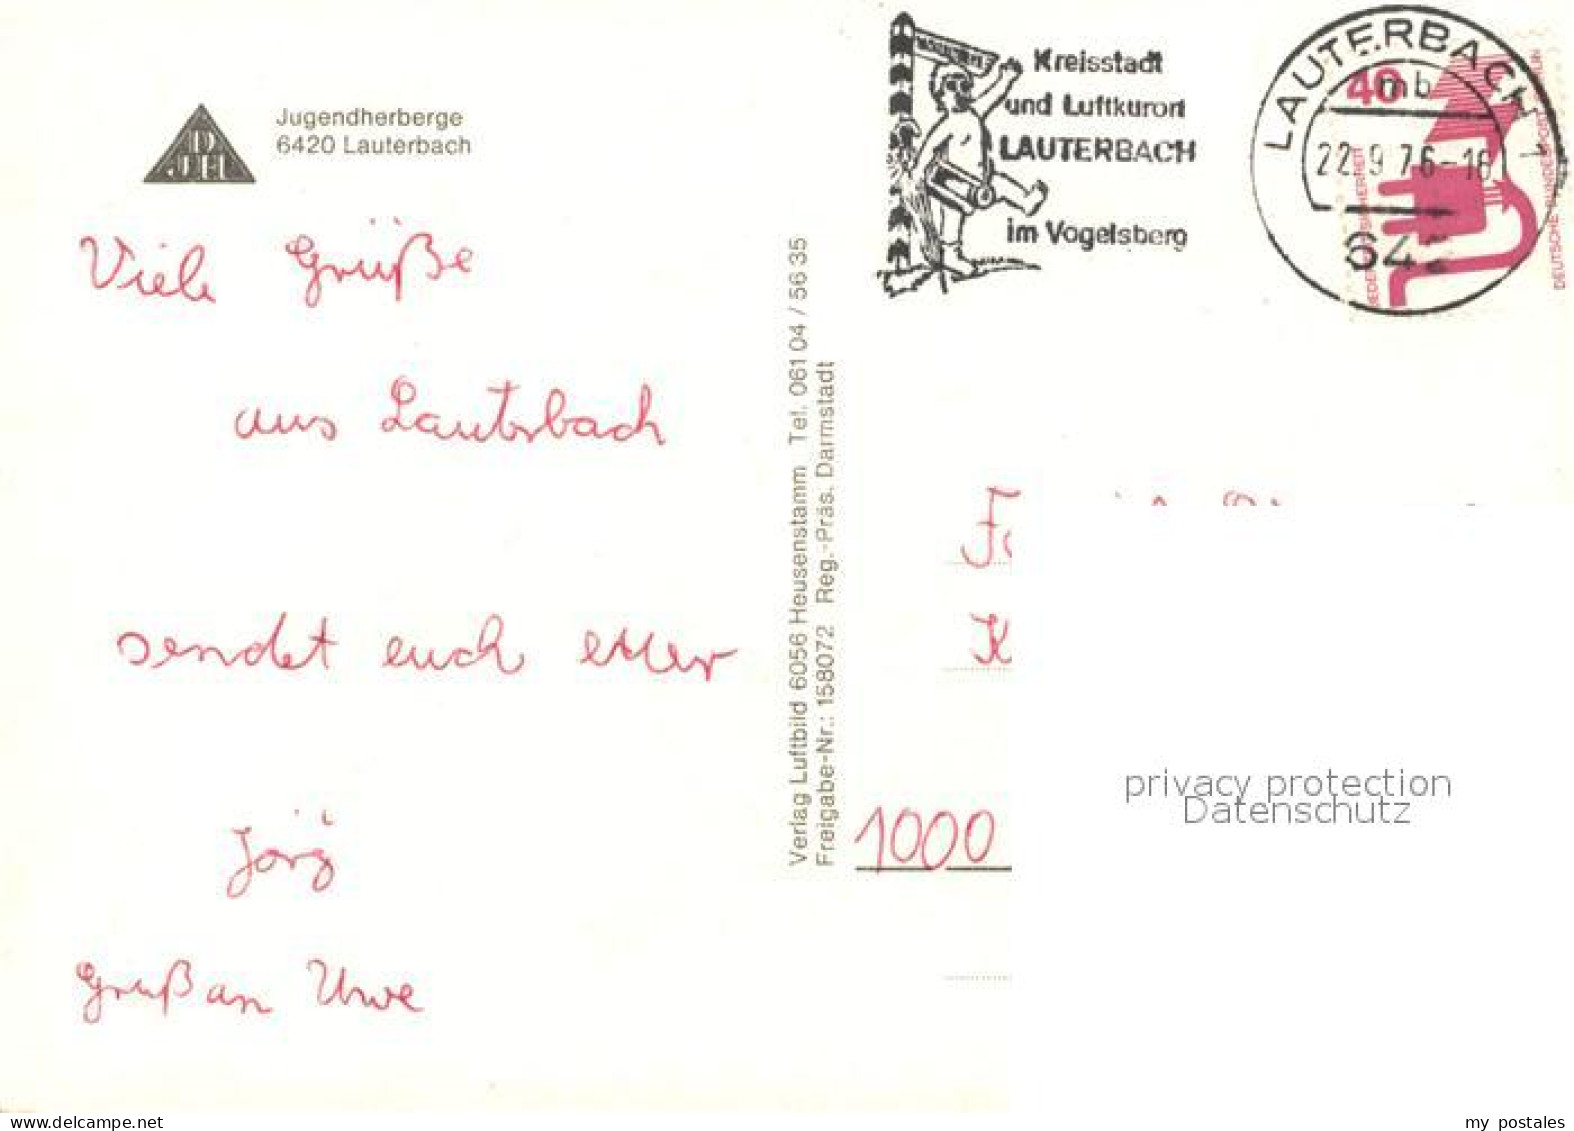 Jugendherberge
6420 Lauterbach
DJH
Viele Grüße
aus Lauterbach
sendet euch euer
Jörg
Gruß an Uwe
Verlag Luftbild 6056 Heusenstamm Tel. 061 04 / 56 35
Freigabe-Nr.: 158072 Reg.-Präs. Darmstadt
Kreisstadt
und Luftkurort
LAUTERBACH
im Vogelsberg
LAUTERBACH 1
mb
22.9.76-16
642
40
DEUTSCHE BUNDESPOST BERLIN
K
1000
privacy protection
Datenschutz
www.delcampe.net
my postales